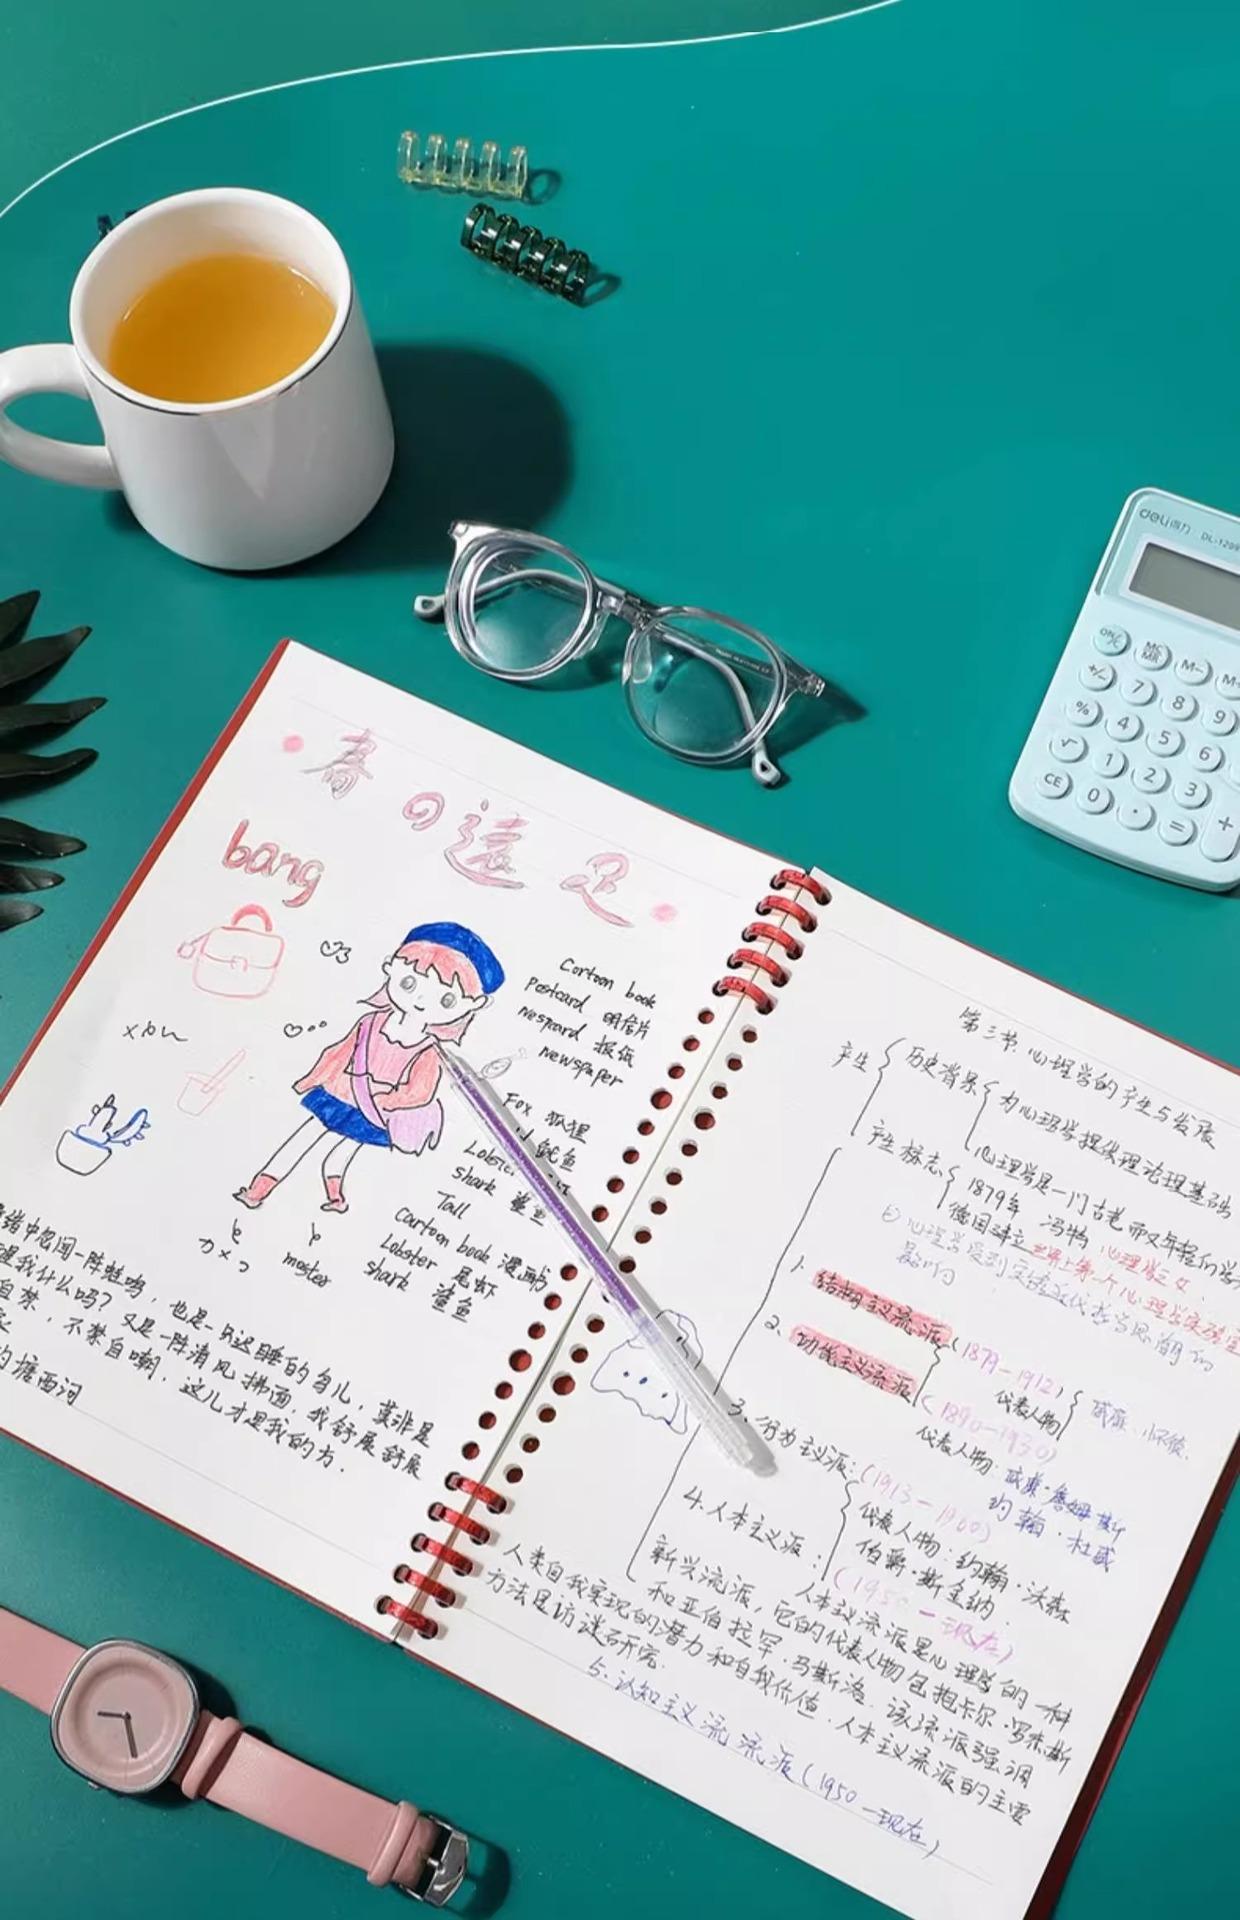 春の遠足
bang
Cartoon book
Postcard 明信片
报纸
newspaper
Fox 狐狸
鱿鱼
shark 鲨鱼
Tall
Cartoon book 漫画书
Lobster 尾虾
shark 鲨鱼
master
绪中忽闻一阵蛙鸣，也是一只迟睡的鸟儿，莫非是
醒我什么吗？又是一阵清风拂面，我舒展舒展
自禁，不禁自嘲，这儿才是我的方.
塘西河
第三节.心理学的产生与发展
产生
历史背景
为心理学提供理论理基础
心理学是一门古老而又年轻的学
产生标志
1879年 冯特 心理学之父
德国建立世界上第一个心理学实验室
1. 结构主义流派(1879-1912)
代表人物
2. 功能主义流派(1890-1930)
代表人物:威廉·詹姆斯
约翰·杜威
3. 分为主义派:(1913-1960)
代表人物:约翰·沃森
伯爵·斯金纳
4.人本主义派:(1950-现在)
人本主义流派是心理学的一种
新兴流派，它的代表人物包抱卡尔·罗杰斯
和亚伯拉罕·马斯洛.该流派强调
人类自我实现的潜力和自我价值.人本主义流派的主要
方法是访谈研究.
5.认知主义流流派(1950-现在)
deli得力
GPC
M-
+/-
7 8 9
% 4 5 6
√ 1 2 3
CE 0 . = +